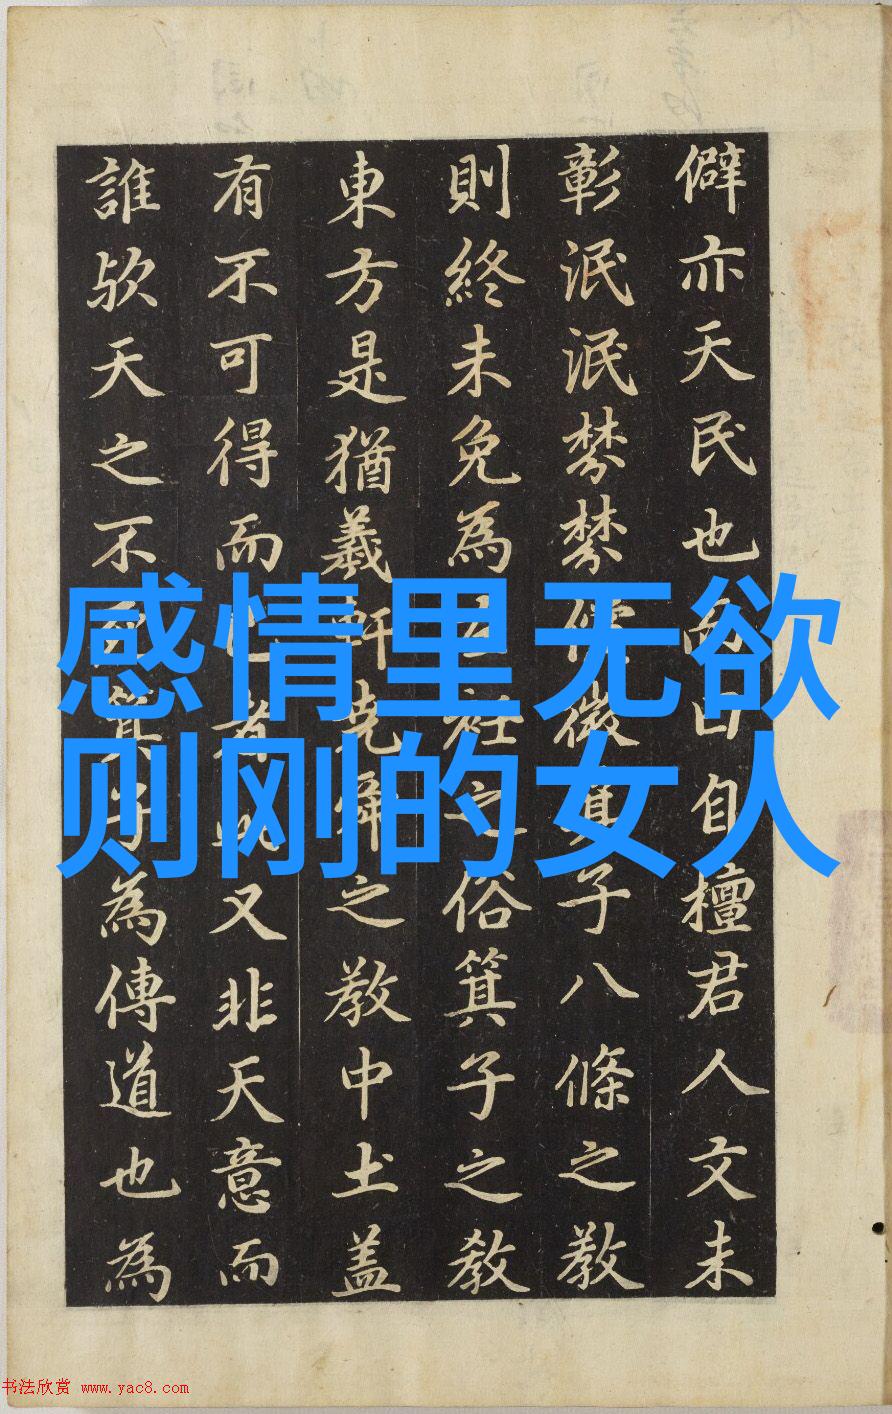 僻亦天民也自檀君人文未
彰泯泯棼棼儻微箕子八條之教
則終未免為左衽之俗箕子之教
東方是猶羲軒堯舜之教中土盖
有不可得而已者此又非天意而
誰欤天之不死箕子為傳道也為
感情里无欲
则刚的女人
书法欣赏 www.yac8.com